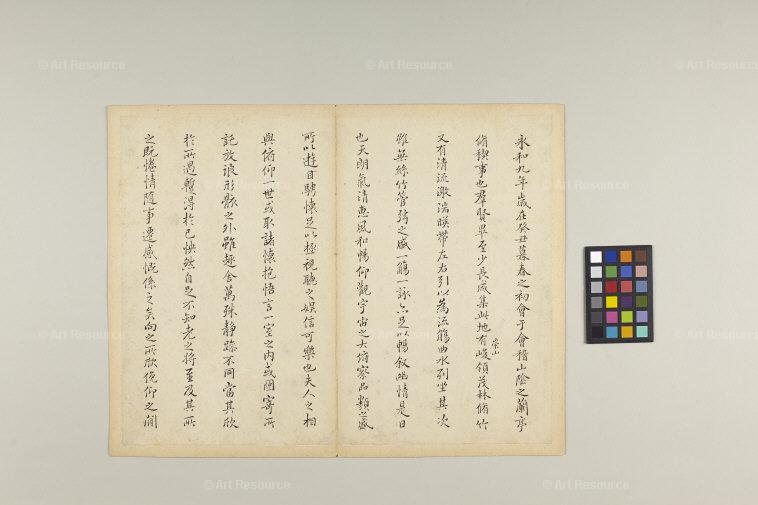 永和九年歳在癸丑暮春之初會于會稽山陰之蘭亭
脩稧事也羣賢畢至少長咸集此地有峻領茂林脩竹
崇山
又有清流激湍暎帶左右引以為流觴曲水列坐其次
雖無絲竹管弦之盛一觴一詠亦足以暢叙幽情是日
也天朗氣清惠風和暢仰觀宇宙之大俯察品類之盛
所以遊目騁懷足以極視聽之娛信可樂也夫人之相
與俯仰一世或取諸懷抱悟言一室之內或因寄所
託放浪形骸之外雖趣舍萬殊静躁不同當其欣
於所遇蹔得於己怏然自足不知老之將至及其所
之既惓情隨事遷感慨係之矣向之所欣俛仰之間
© Art Resource
© Art Resource
© Art Resource
© Art Resource
© Art Resource
© Art Resource
© Art Resource
© Art Resource
© Art Resource
© Art Resource